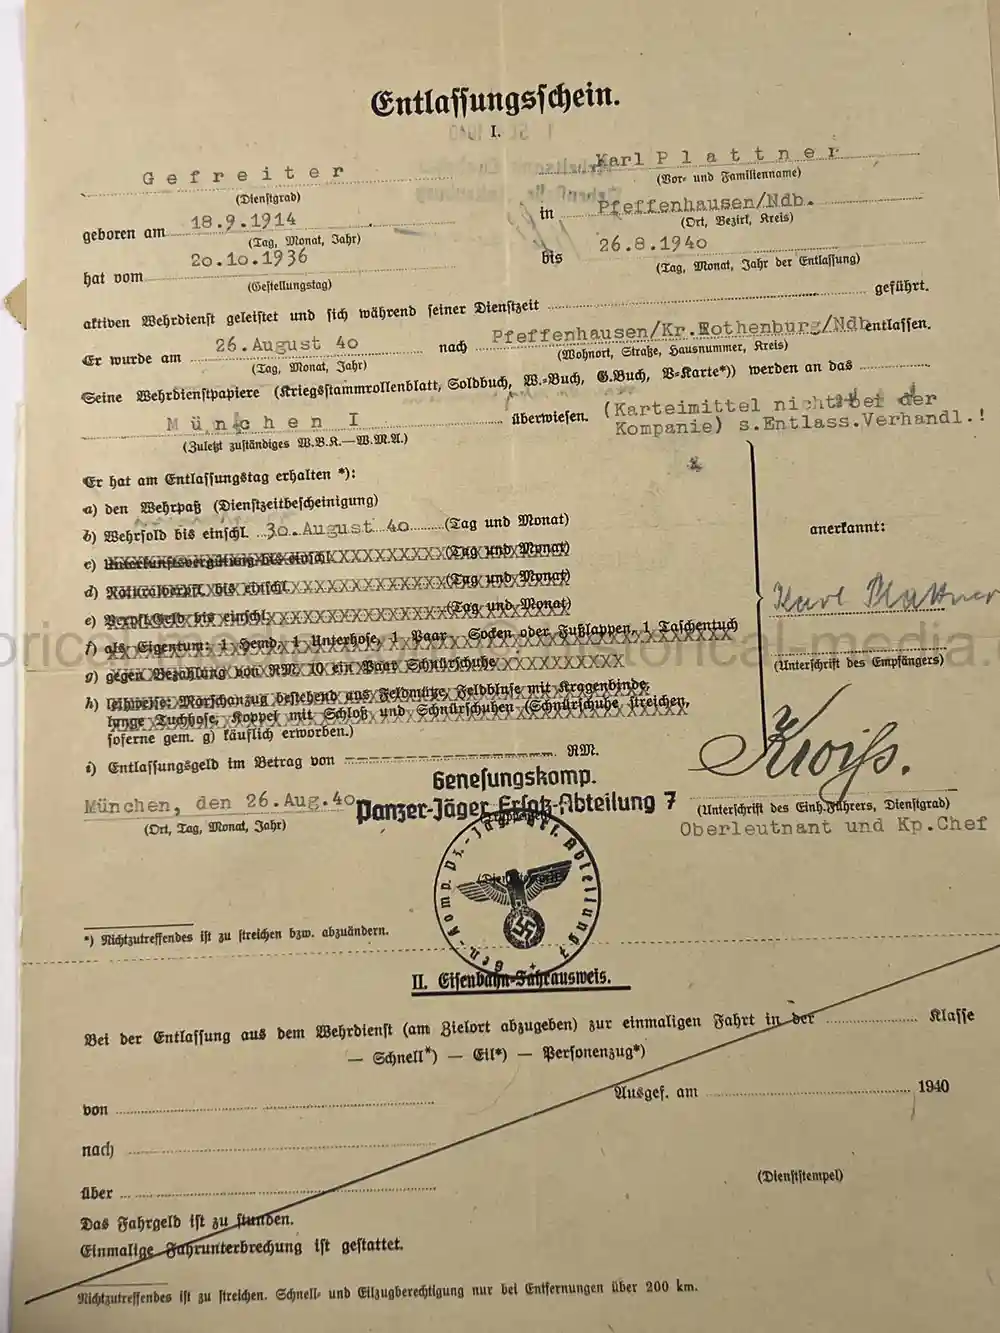 Entlassungsschein.
I.
Gefreiter Karl Plattner
(Dienstgrad) (Vor- und Familienname)
geboren am 18.9.1914 in Pfeffenhausen/Ndb.
(Tag, Monat, Jahr) (Ort, Bezirk, Kreis)
hat vom 20.10.1936 bis 26.8.1940
(Gestellungstag) (Tag, Monat, Jahr der Entlassung)
aktiven Wehrdienst geleistet und sich während seiner Dienstzeit geführt.
Er wurde am 26.August 40 nach Pfeffenhausen/Kr.Rothenburg/Ndb entlassen.
(Tag, Monat, Jahr) (Wohnort, Straße, Hausnummer, Kreis)
Seine Wehrdienstpapiere (Kriegsstammrollenblatt, Soldbuch, W.-Buch, G.Buch, V-Karte*)) werden an das
München I überwiesen. (Karteimittel nicht bei der
(Zuletzt zuständiges W.B.K.—W.M.A.) Kompanie) s.Entlass.Verhandl.!
Er hat am Entlassungstag erhalten *):
a) den Wehrpaß (Dienstzeitbescheinigung)
b) Wehrsold bis einschl. 30.August 40 (Tag und Monat)
anerkannt:
c) Unterkunftsvergütung bis einschl. XXXXXXXXX (Tag und Monat)
d) Naturalverpfl. bis einschl. XXXXXXXXX (Tag und Monat)
e) Verpfl.Geld bis einschl. XXXXXXXXX (Tag und Monat)
Karl Plattner
f) als Eigentum: 1 Hemd, 1 Unterhose, 1 Paar Socken oder Fußlappen, 1 Taschentuch
g) gegen Bezahlung von RM. 10 ein Paar Schnürschuhe XXXXXXXXXX
(Unterschrift des Empfängers)
h) leihweise: Marschanzug bestehend aus Feldmütze, Feldbluse mit Kragenbinde,
lange Tuchhose, Koppel mit Schloß und Schnürschuhen (Schnürschuhe streichen,
soferne gem. g) käuflich erworben.)
i) Entlassungsgeld im Betrag von RM.
Kroiß.
Genesungskomp.
München, den 26.Aug.40 Panzer-Jäger Ersatz-Abteilung 7
(Ort, Tag, Monat, Jahr) (Unterschrift des Einh.Führers, Dienstgrad)
Oberleutnant und Kp.Chef
Gen.-Komp. Pz.-Jäg. Ers. Abteilung 7
*) Nichtzutreffendes ist zu streichen bzw. abzuändern.
II. Eisenbahn-Fahrausweis.
Bei der Entlassung aus dem Wehrdienst (am Zielort abzugeben) zur einmaligen Fahrt in der Klasse
— Schnell*) — Eil*) — Personenzug*)
von Ausgef. am 1940
nach
(Dienststempel)
über
Das Fahrgeld ist zu stunden.
Einmalige Fahrunterbrechung ist gestattet.
Nichtzutreffendes ist zu streichen. Schnell- und Eilzugberechtigung nur bei Entfernungen über 200 km.